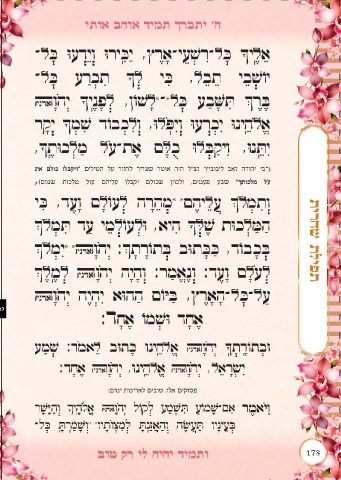 ה' יתברך תמיד אוהב אותי
אֵלֶיךָ כָּל־רִשְׁעֵי־אָרֶץ, יַכִּירוּ וְיֵדְעוּ כָּל־
יוֹשְׁבֵי תֵבֵל, כִּי לְךָ תִכְרַע כָּל־
בֶּרֶךְ תִּשָּׁבַע כָּל־לָשׁוֹן, לְפָנֶיךָ יְהֹוָה
אֱלֹהֵינוּ יִכְרְעוּ וְיִפֹּלוּ, וְלִכְבוֹד שִׁמְךָ יְקָר
יִתֵּנוּ, וִיקַבְּלוּ כֻלָּם אֶת־עֹל מַלְכוּתֶךָ,
(רבי יהודה זאב ליבוביץ זצ"ל היה אומר שצריך לחזור על המילים "ויקבלו כולם את
על מלכותך" שבע פעמים, ולכוין שכולם יקבלו עליהם עול מלכות שמים),
וְתִמְלֹךְ עֲלֵיהֶם מְהֵרָה לְעוֹלָם וָעֶד, כִּי
הַמַּלְכוּת שֶׁלְּךָ הִיא, וּלְעוֹלְמֵי עַד תִּמְלֹךְ
בְּכָבוֹד, כַּכָּתוּב בְּתוֹרָתָךְ: יְהֹוָה יִמְלֹךְ
לְעֹלָם וָעֶד: וְנֶאֱמַר: וְהָיָה יְהֹוָה לְמֶלֶךְ
עַל־כָּל־הָאָרֶץ, בַּיּוֹם הַהוּא יִהְיֶה יְהֹוָה
אֶחָד וּשְׁמוֹ אֶחָד:
וּבְתוֹרָתְךָ יְהֹוָה אֱלֹהֵינוּ כָּתוּב לֵאמֹר: שְׁמַע
יִשְׂרָאֵל, יְהֹוָה אֱלֹהֵינוּ, יְהֹוָה אֶחָד:
פסוקים אלו, טובים לאריכות ימים:
וַיֹּאמֶר אִם־שָׁמוֹעַ תִּשְׁמַע לְקוֹל יְהֹוָה אֱלֹהֶיךָ וְהַיָּשָׁר
בְּעֵינָיו תַּעֲשֶׂה וְהַאֲזַנְתָּ לְמִצְוֹתָיו וְשָׁמַרְתָּ כָּל־
ותמיד יהיה לי רק טוב
תפילת שחרית
178